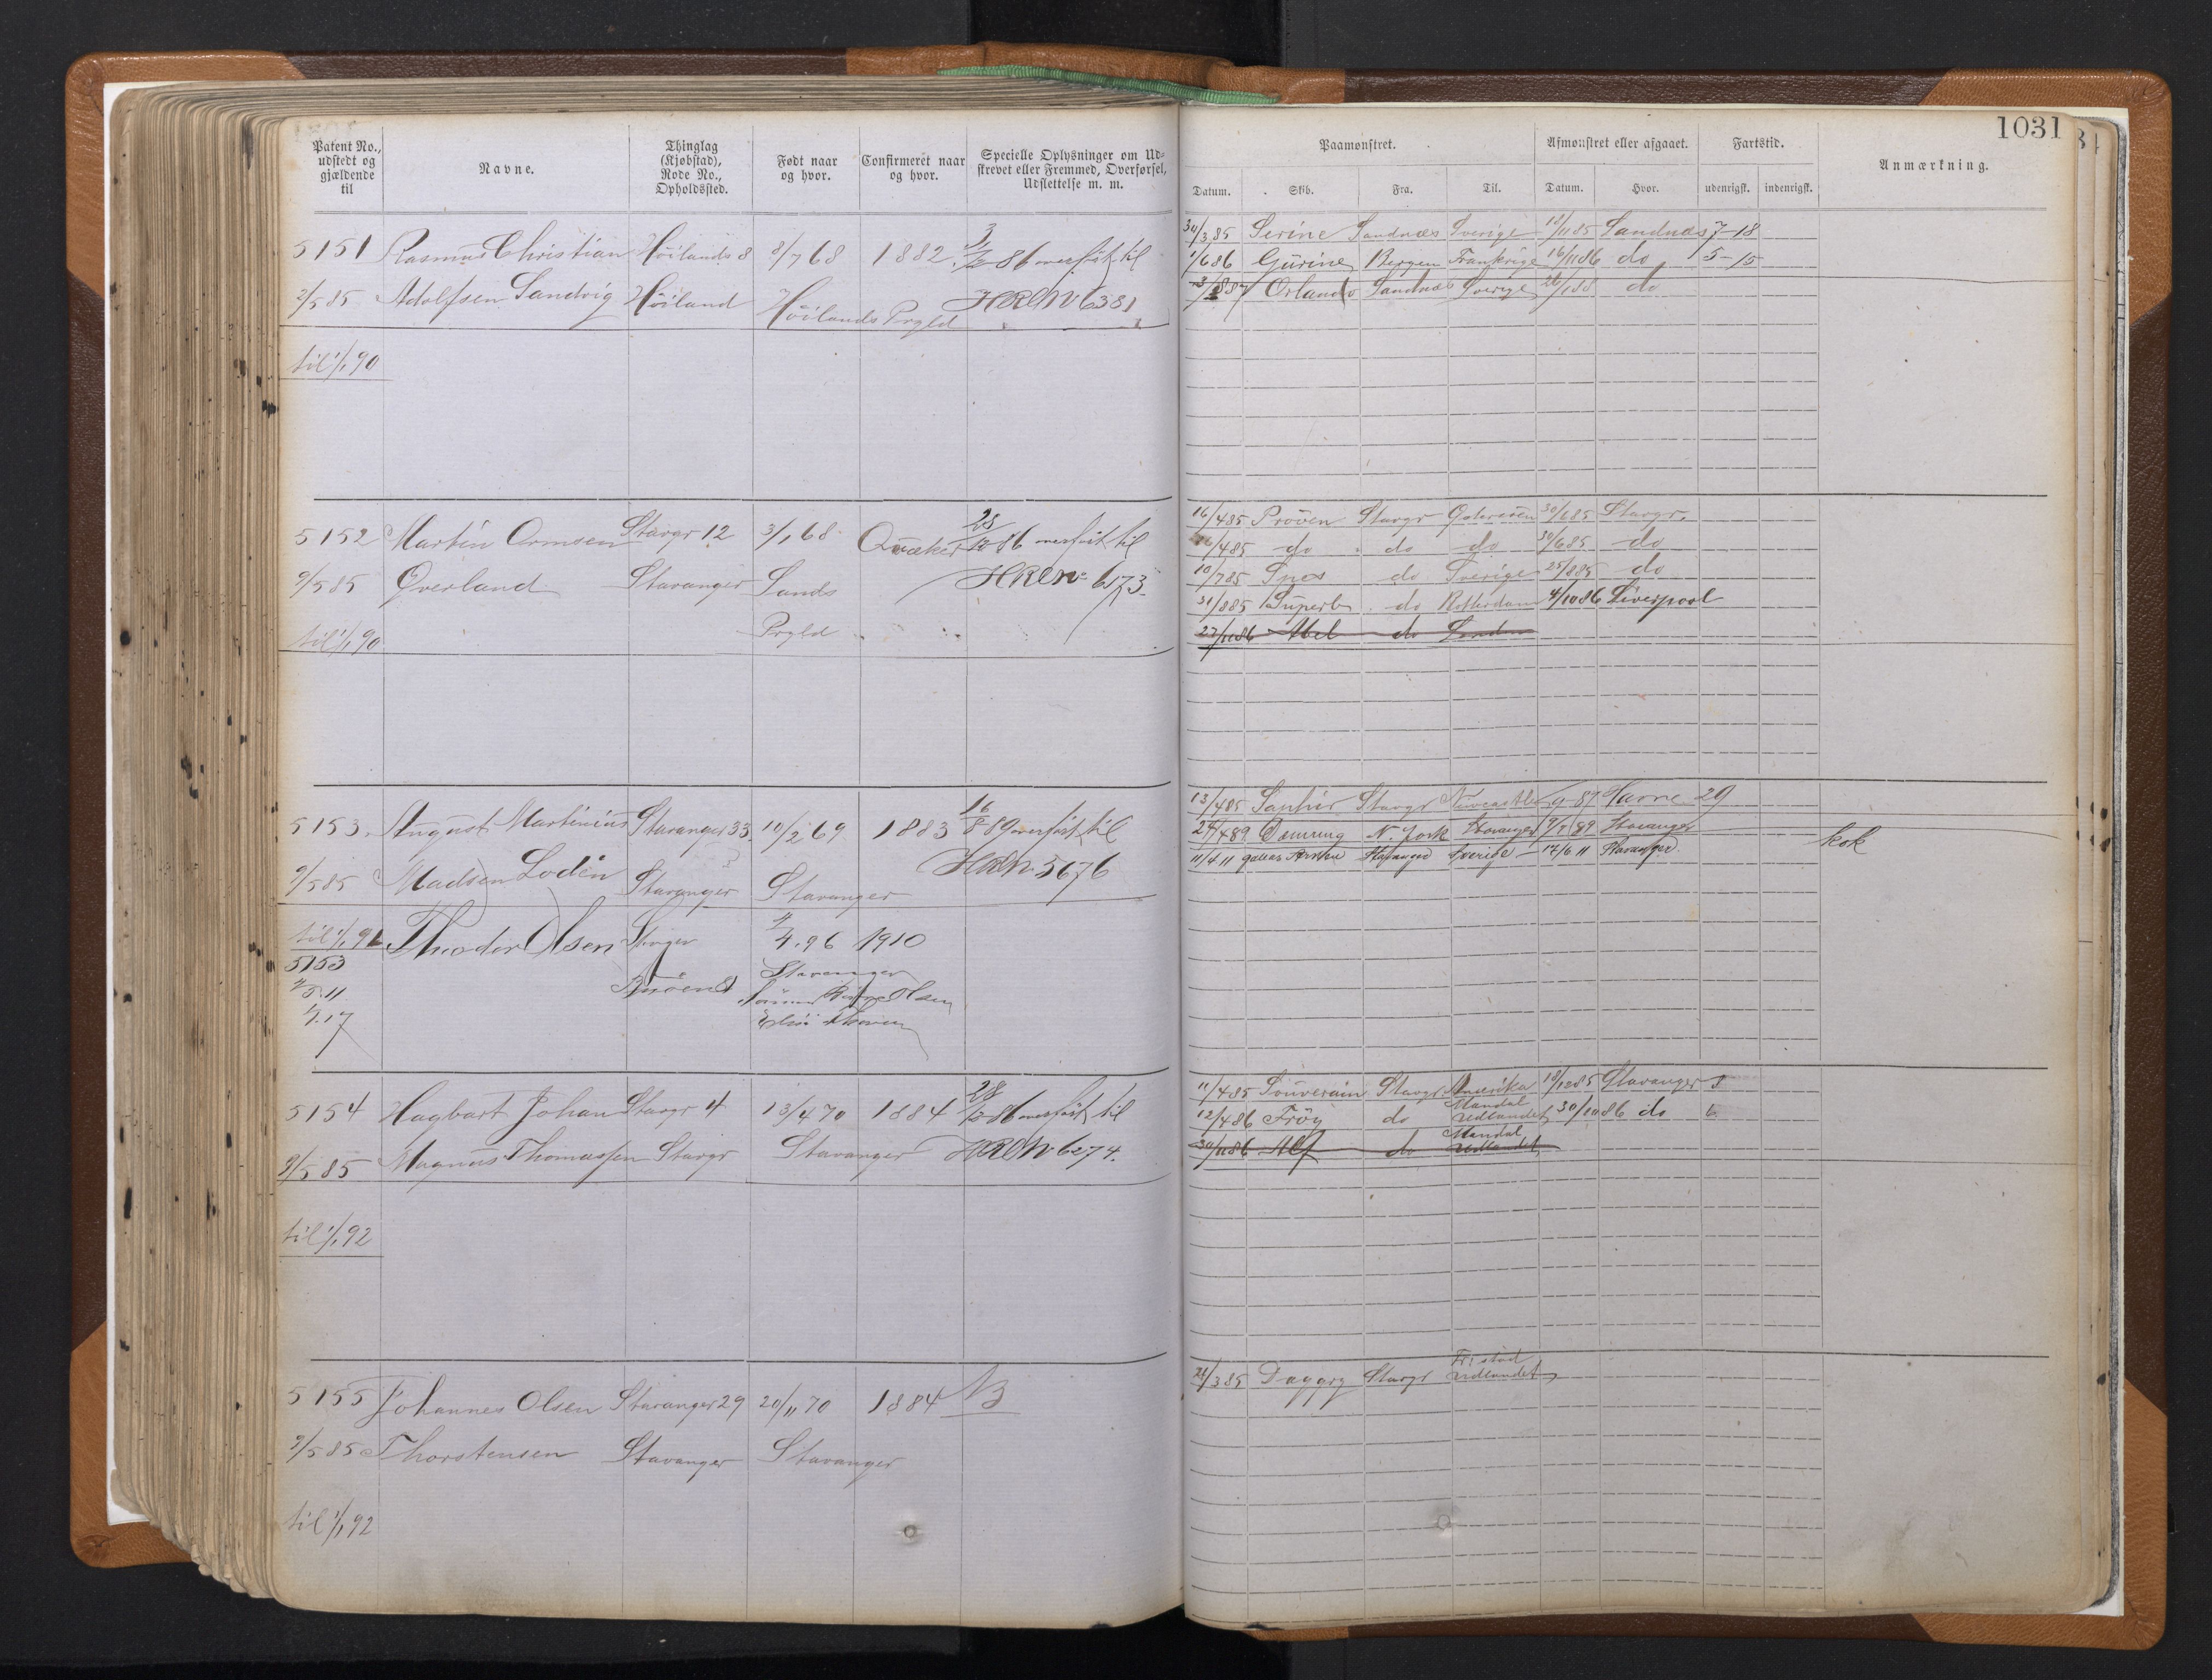 1031
Patent No., udstedt og gjældende til
Navne.
Thinglag (Kjøbstad), Rode No., Opholdssted.
Født naar og hvor.
Confirmeret naar og hvor.
Specielle Oplysninger om Udskrevet eller Fremmed, Overførsel, Udslettelse m. m.
Paamønstret.
Afmønstret eller afgaaet.
Fartstid.
Anmærkning.
Datum. Skib. Fra. Til. Datum. Hvor. udenrigsk. indenrigsk.
5151 Rasmus Christian Høilands 8 8/7 68 1882 3/12 86 overført til
2/5 85 Adolfsen Sandvig Høiland Høilands Prgld HRL No 6381
til 1/1 90
Serine Sandnæs Sverige Sandnæs 7-18
1/6 86 Gurine Bergen Frankrige 16/11 86 do 5-15
Orlando Sandnæs Sverige do
5152 Martin Ormsen Stavgr 12 3/1 68 Qvæker 28/12 86 overført til
9/5 85 Qverland Stavanger Sands HRL No 6173
til 1/1 90 Prgld
16/4 85 Prøven Stavgr 30/6 85 Stavgr.
16/4 85 do do do 30/6 85 do
10/7 85 do Sverige 25/8 85 do
31/8 85 Superb do Rotterdam 4/10 86 Liverpool
27/11 86 Abel do London
5153. August Martinius Stavanger 33. 10/2 69 1883 16/8 89 overført til
9/5 85 Madsen Lodin Stavanger Stavanger HRL No 5676
til 1/1 91 Theodor Olsen Stvgr 4.96 1910
5153 Stavanger
5.11 Olsen
1/1.17
13/4 85 Stavgr Newcastle 9-87 29
24/4 89 N. York Stavanger 9/7 89 Stavanger kok
11/4 11 Stavanger Sverige 17/6 11 Stavanger
5154 Hagbart Johan Stavgr 4 13/4 70 1884 28/12 86 overført til
9/5 85 Magnus Thomassen Stavgr Stavanger HRL No 6274.
til 1/1 92
11/4 85 Souverain Stavgr Amerika 18/12 85 Stavanger 8
12/4 86 Frøy do Mandal Udlandet 30/10 86 do 6
30/11 86 Alf do Mandal Udlandet
5155 Johannes Olsen Stavanger 29 20/11 70 1884
9/5 85 Thorstensen Stavanger Stavanger
til 1/1 92
Daggry Stavgr Udlandet